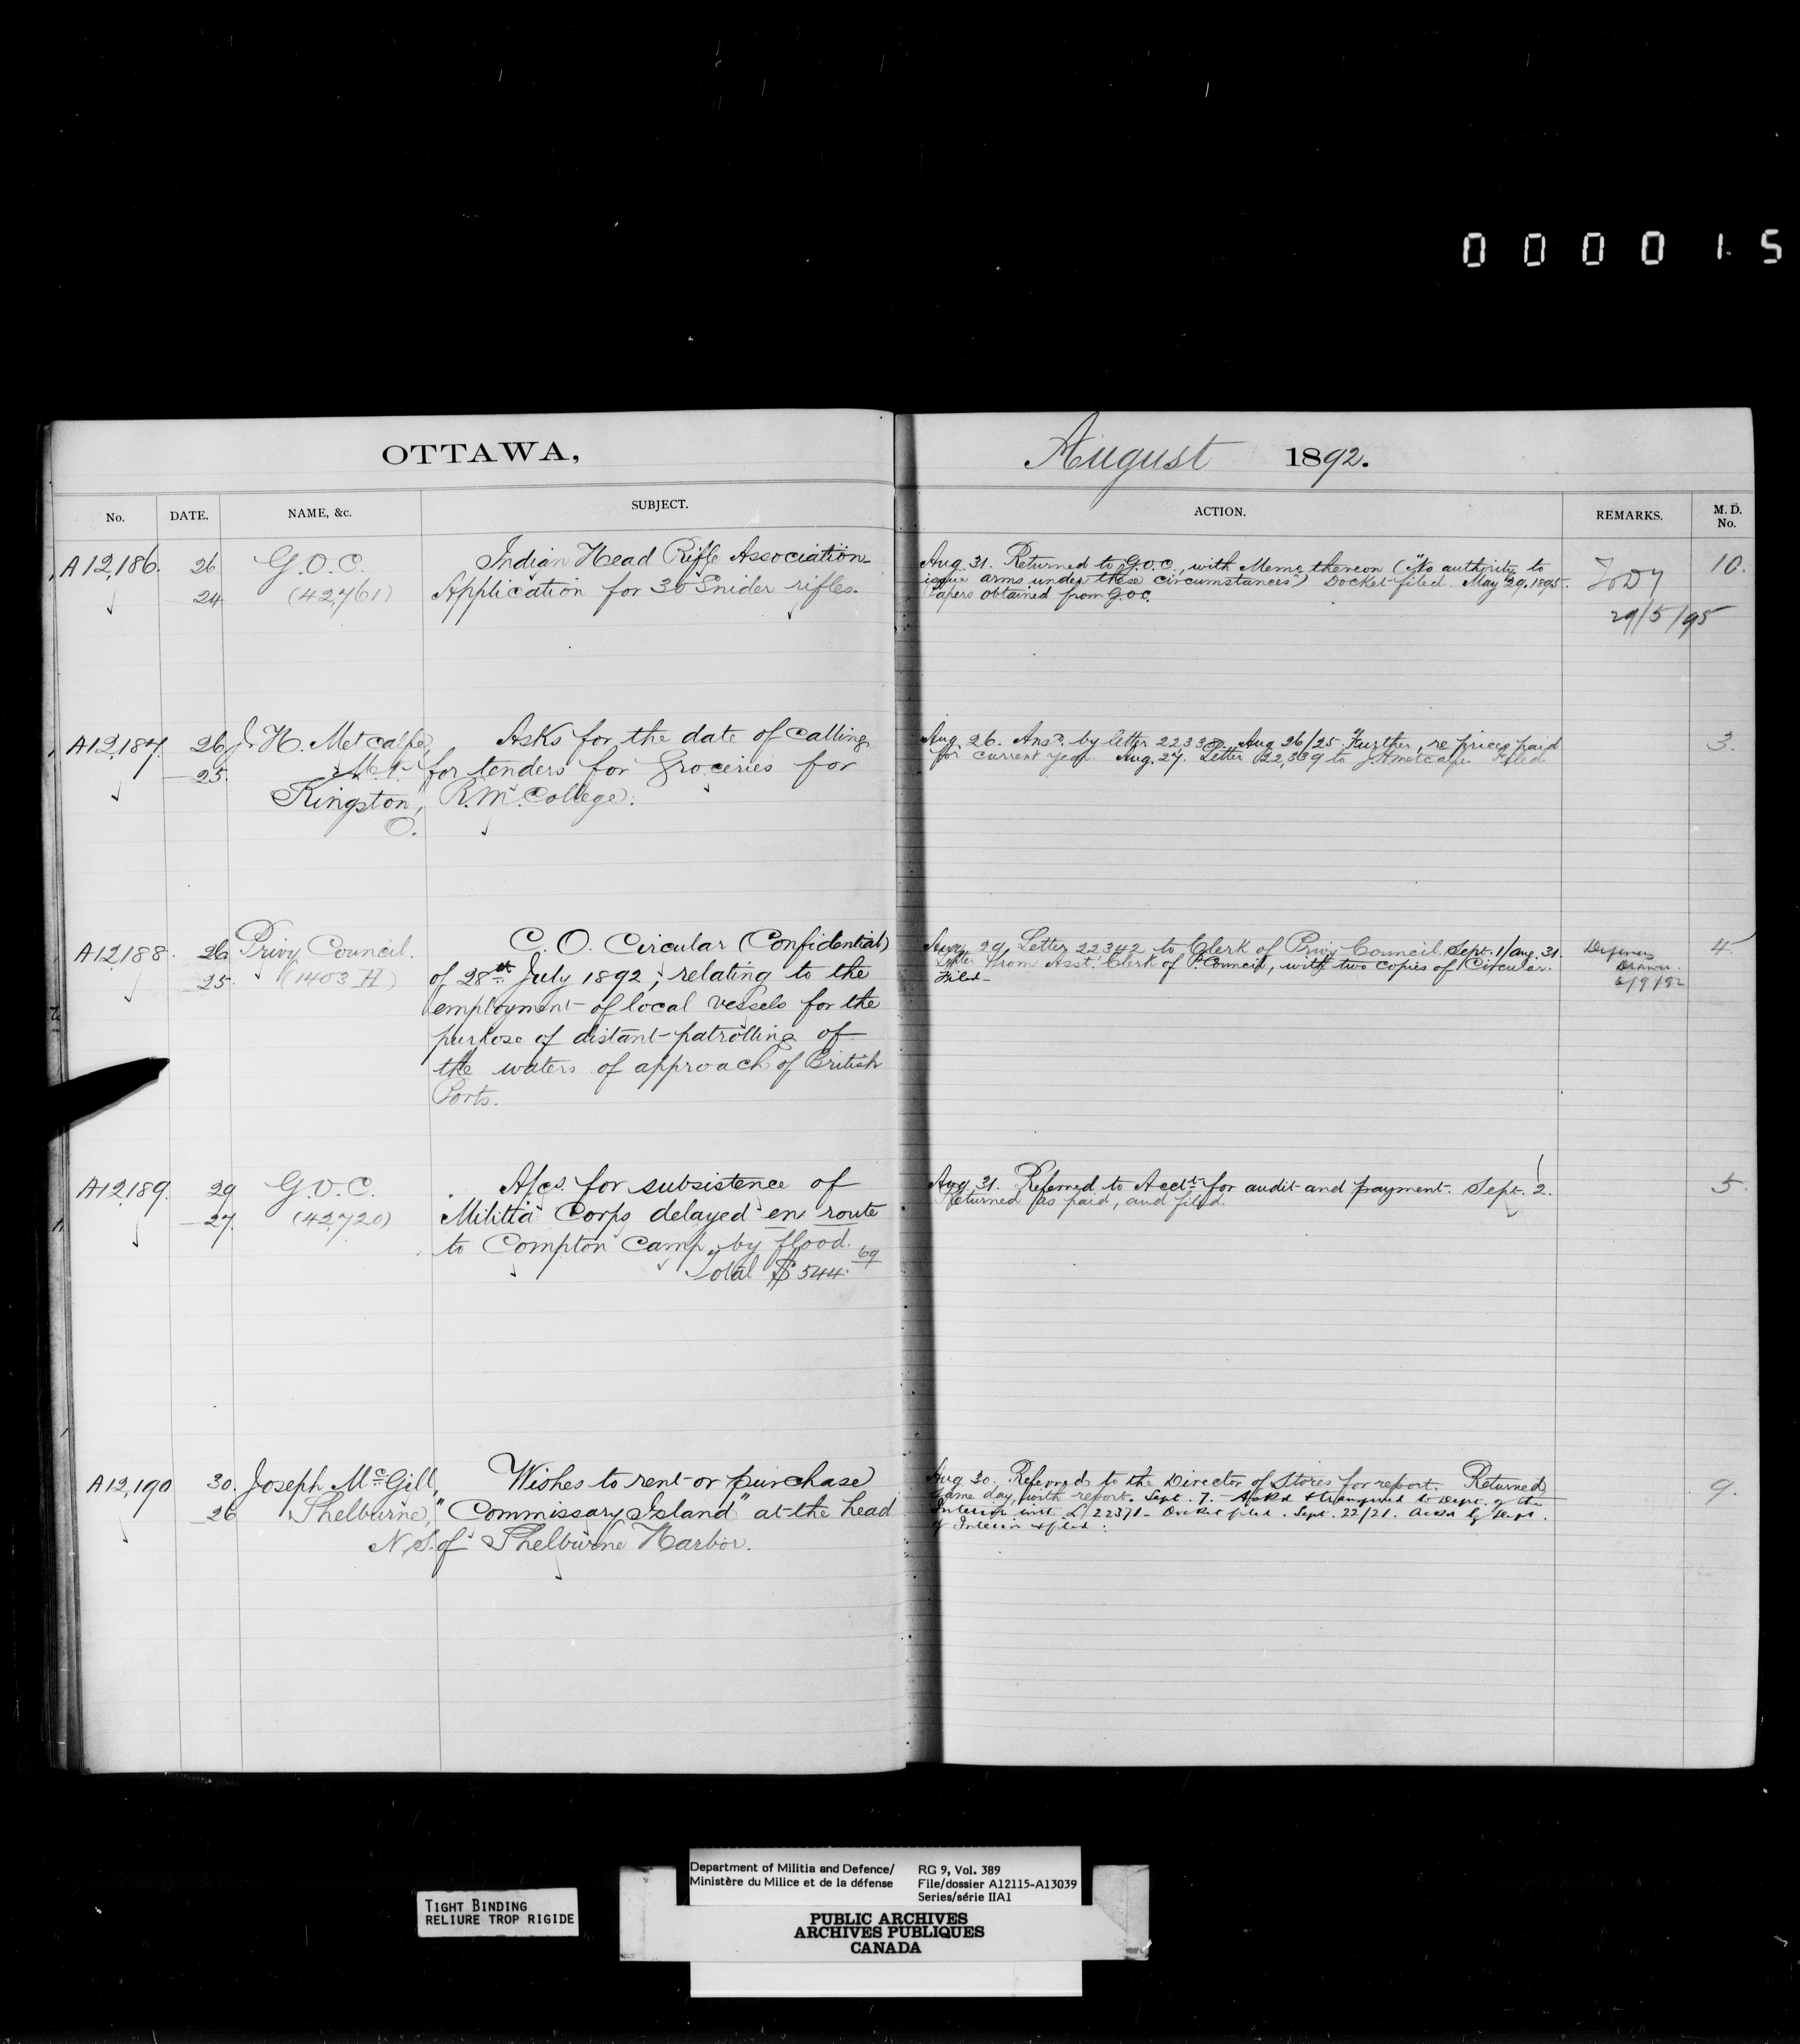 0 0 0 0 1 5
OTTAWA,
August 1892.
No. DATE. NAME, &c. SUBJECT. ACTION. REMARKS. M. D. No.
A12,186. 26 G.O.C. Indian Head Rifle Association
24 (42,761) Application for 30 Snider rifles.
Aug. 31. Returned to G.O.C., with Memo thereon ("No authority to
issue arms under these circumstances") Docket filed. May 29, 1895.
Papers obtained from G.O.C.
29/5/95
10.
A12,187. 26 J. H. Metcalfe, Asks for the date of calling
25. M.P. for tenders for groceries for
Kingston, R.M. College.
O.
Aug. 26. Ansd. by letter 22338. Aug 26/25. Further, re prices paid
for current year. Aug. 27. Letter 22,339 to J.H. Metcalfe. Filed
3.
A12,188. 26 Privy Council. C. O. Circular (Confidential)
25. (1403 H) of 28th July 1892, relating to the
employment of local vessels for the
purpose of distant patrolling of
the waters of approach of British
Ports.
Aug. 29. Letter 22342 to Clerk of Privy Council. Sept. 1/Aug. 31.
Letter from Asst. Clerk of P. Council, with two copies of Circular.
Filed
Defences
Drawer.
6/9/92
4.
A12,189. 29 G.O.C. A/cs. for subsistence of
27. (42,720) Militia Corps delayed en route
to Compton Camp, by flood.
Total $544.69
Aug. 31. Referred to Acct. for audit and payment. Sept. 2.
Returned as paid, and filed.
5.
A12,190 30. Joseph McGill, Wishes to rent or purchase
26 Shelburne, "Commissary Island" at the head
N.S. of Shelburne Harbor.
Aug. 30. Referred to the Director of Stores for report. Returned
same day, with report. Sept. 7. Ackd & transferred to Dept. of the
Interior with L/22371. Docket filed. Sept. 22/21. Ackd by Dept.
of Interior & filed.
9.
TIGHT BINDING
RELIURE TROP RIGIDE
Department of Militia and Defence/
Ministère du Milice et de la défense
RG 9, Vol. 389
File/dossier A12115-A13039
Series/série IIA1
PUBLIC ARCHIVES
ARCHIVES PUBLIQUES
CANADA